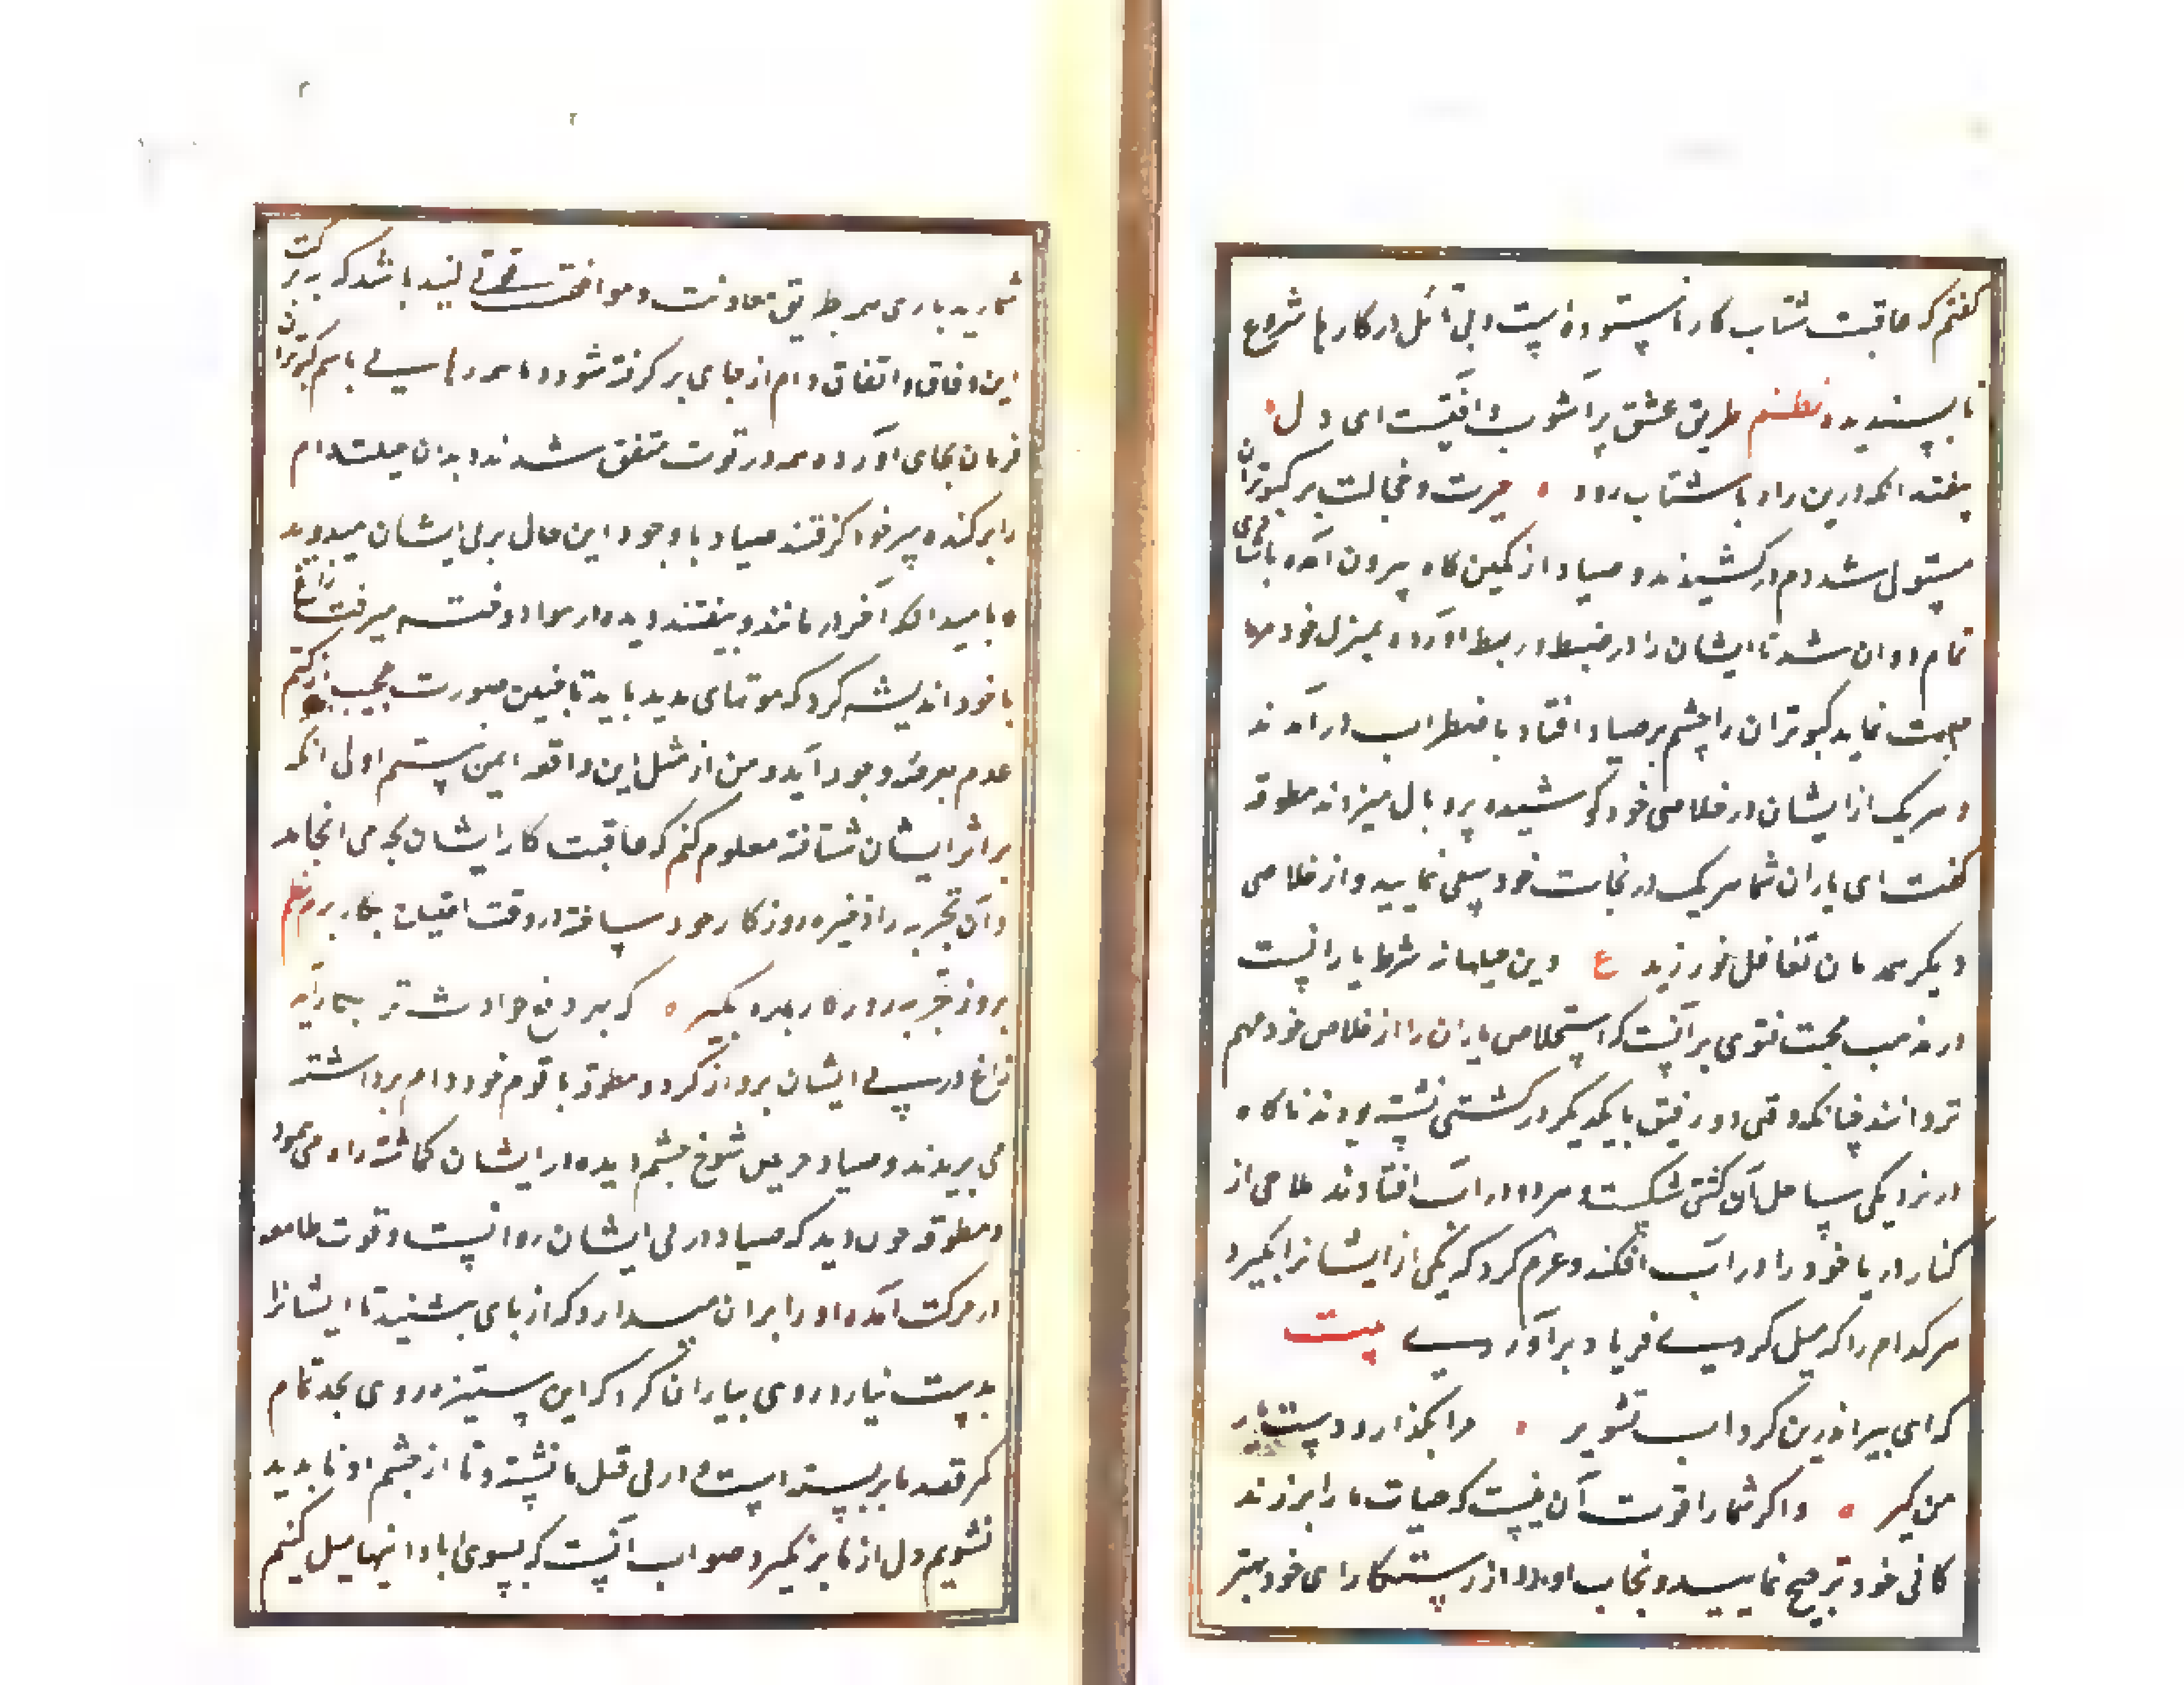 گفتم که عاقبت شتاب کار ناستوده است و بی تأمل در کارها شروع
ناپسندیده نظم طریق عشق پر آشوب و آفتست ای دل
بیفتد آنکه درین راه با شتاب رود حیرت و خجالت بر کبوتران
مستولی شد دم درکشیدند و صیاد از کمین کاه بیرون آمده با شادی
تمام دوان شد تا ایشان را در ضبط و ربط آورده بمنزل خود
نماید کبوتران را چشم بر صیاد افتاد باضطراب درآمدند
و هر یک از ایشان در خلاصی خود کوشیده پر و بال میزدند مطوقه
کفت ای یاران شما هر یک در نجات خود سعی نمایید و از خلاصی
دیکر همدمان تغافل میورزید ع وین میانه شرط یاران نیست
در مذهب محبت فتوی برآنست که استخلاص یاران را از خلاص خود مهم
تر دانند چنانکه وقتی دو رفیق با یکدیکر در کشتی نشسته بودند ناکاه
در نزدیکی ساحل آن کشتی شکست و هر دو در آب افتادند ملاحی از
کنار دریا خود را در آب افکند و عزم کرد که یکی از ایشانرا بکیرد
هر کدام را که میل کردی فریاد برآوردی بیت
که ای بیر اندرین کرداب تشویر مرا بکذار و دست یار
من کیر و اکر شما را قوت آن نیست که حیات یار را بر زند
کانی خود ترجیح نمایید و نجات او را از رستکاری خود بهتر
شمارید باری همه بطریق معاونت و موافقت قوتی کنید باشد که ببرکت
این وفاق و اتفاق دام از جای برکرفته شود و ما همه رهایی یابیم کبوتران
فرمان بجای آورده همه در قوت متفق شدند و بدان حیلت دام
را برکنده سر خود کرفتند صیاد با وجود این حال در پی ایشان میدوید
بامید آنکه آخر درمانند و بیفتند دیده در هوا دوخته میرفت زاغ
با خود اندیشه کرد که مدتهای مدید باید تا چنین صورت عجیب از کتم
عدم بعرصه وجود آید و من از مثل این واقعه ایمن نیستم اولی آنکه
بر اثر ایشان شتافته معلوم کنم که عاقبت کار ایشان بچه می انجامد
و آن تجربه را ذخیره روزکار خود ساخته در وقت احتیاج بکار برم نظم
بروز تجربه روزکار بهره بکیر که بهر دفع حوادث ترا بکار آید
زاغ در پی ایشان پرواز کرد و مطوقه با قوم خود دام برداشته
می پریدند و صیاد حریص شوخ چشم دیده در ایشان کماشته راه می پیمود
و مطوقه چون دید که صیاد در پی ایشان روانست و قوت طامعه
در حرکت آمده او را بر آن میدارد که از پای ننشیند تا ایشانرا
بدست نیارد روی بیاران کرد که این ستیزه روی بجد تمام
کمر قصد ما بر بسته است و در پی قتل ما نشسته و تا از چشم او ناپدید
نشویم دل از ما برنکیرد صواب آنست که بسوی آبادانیها میل کنیم